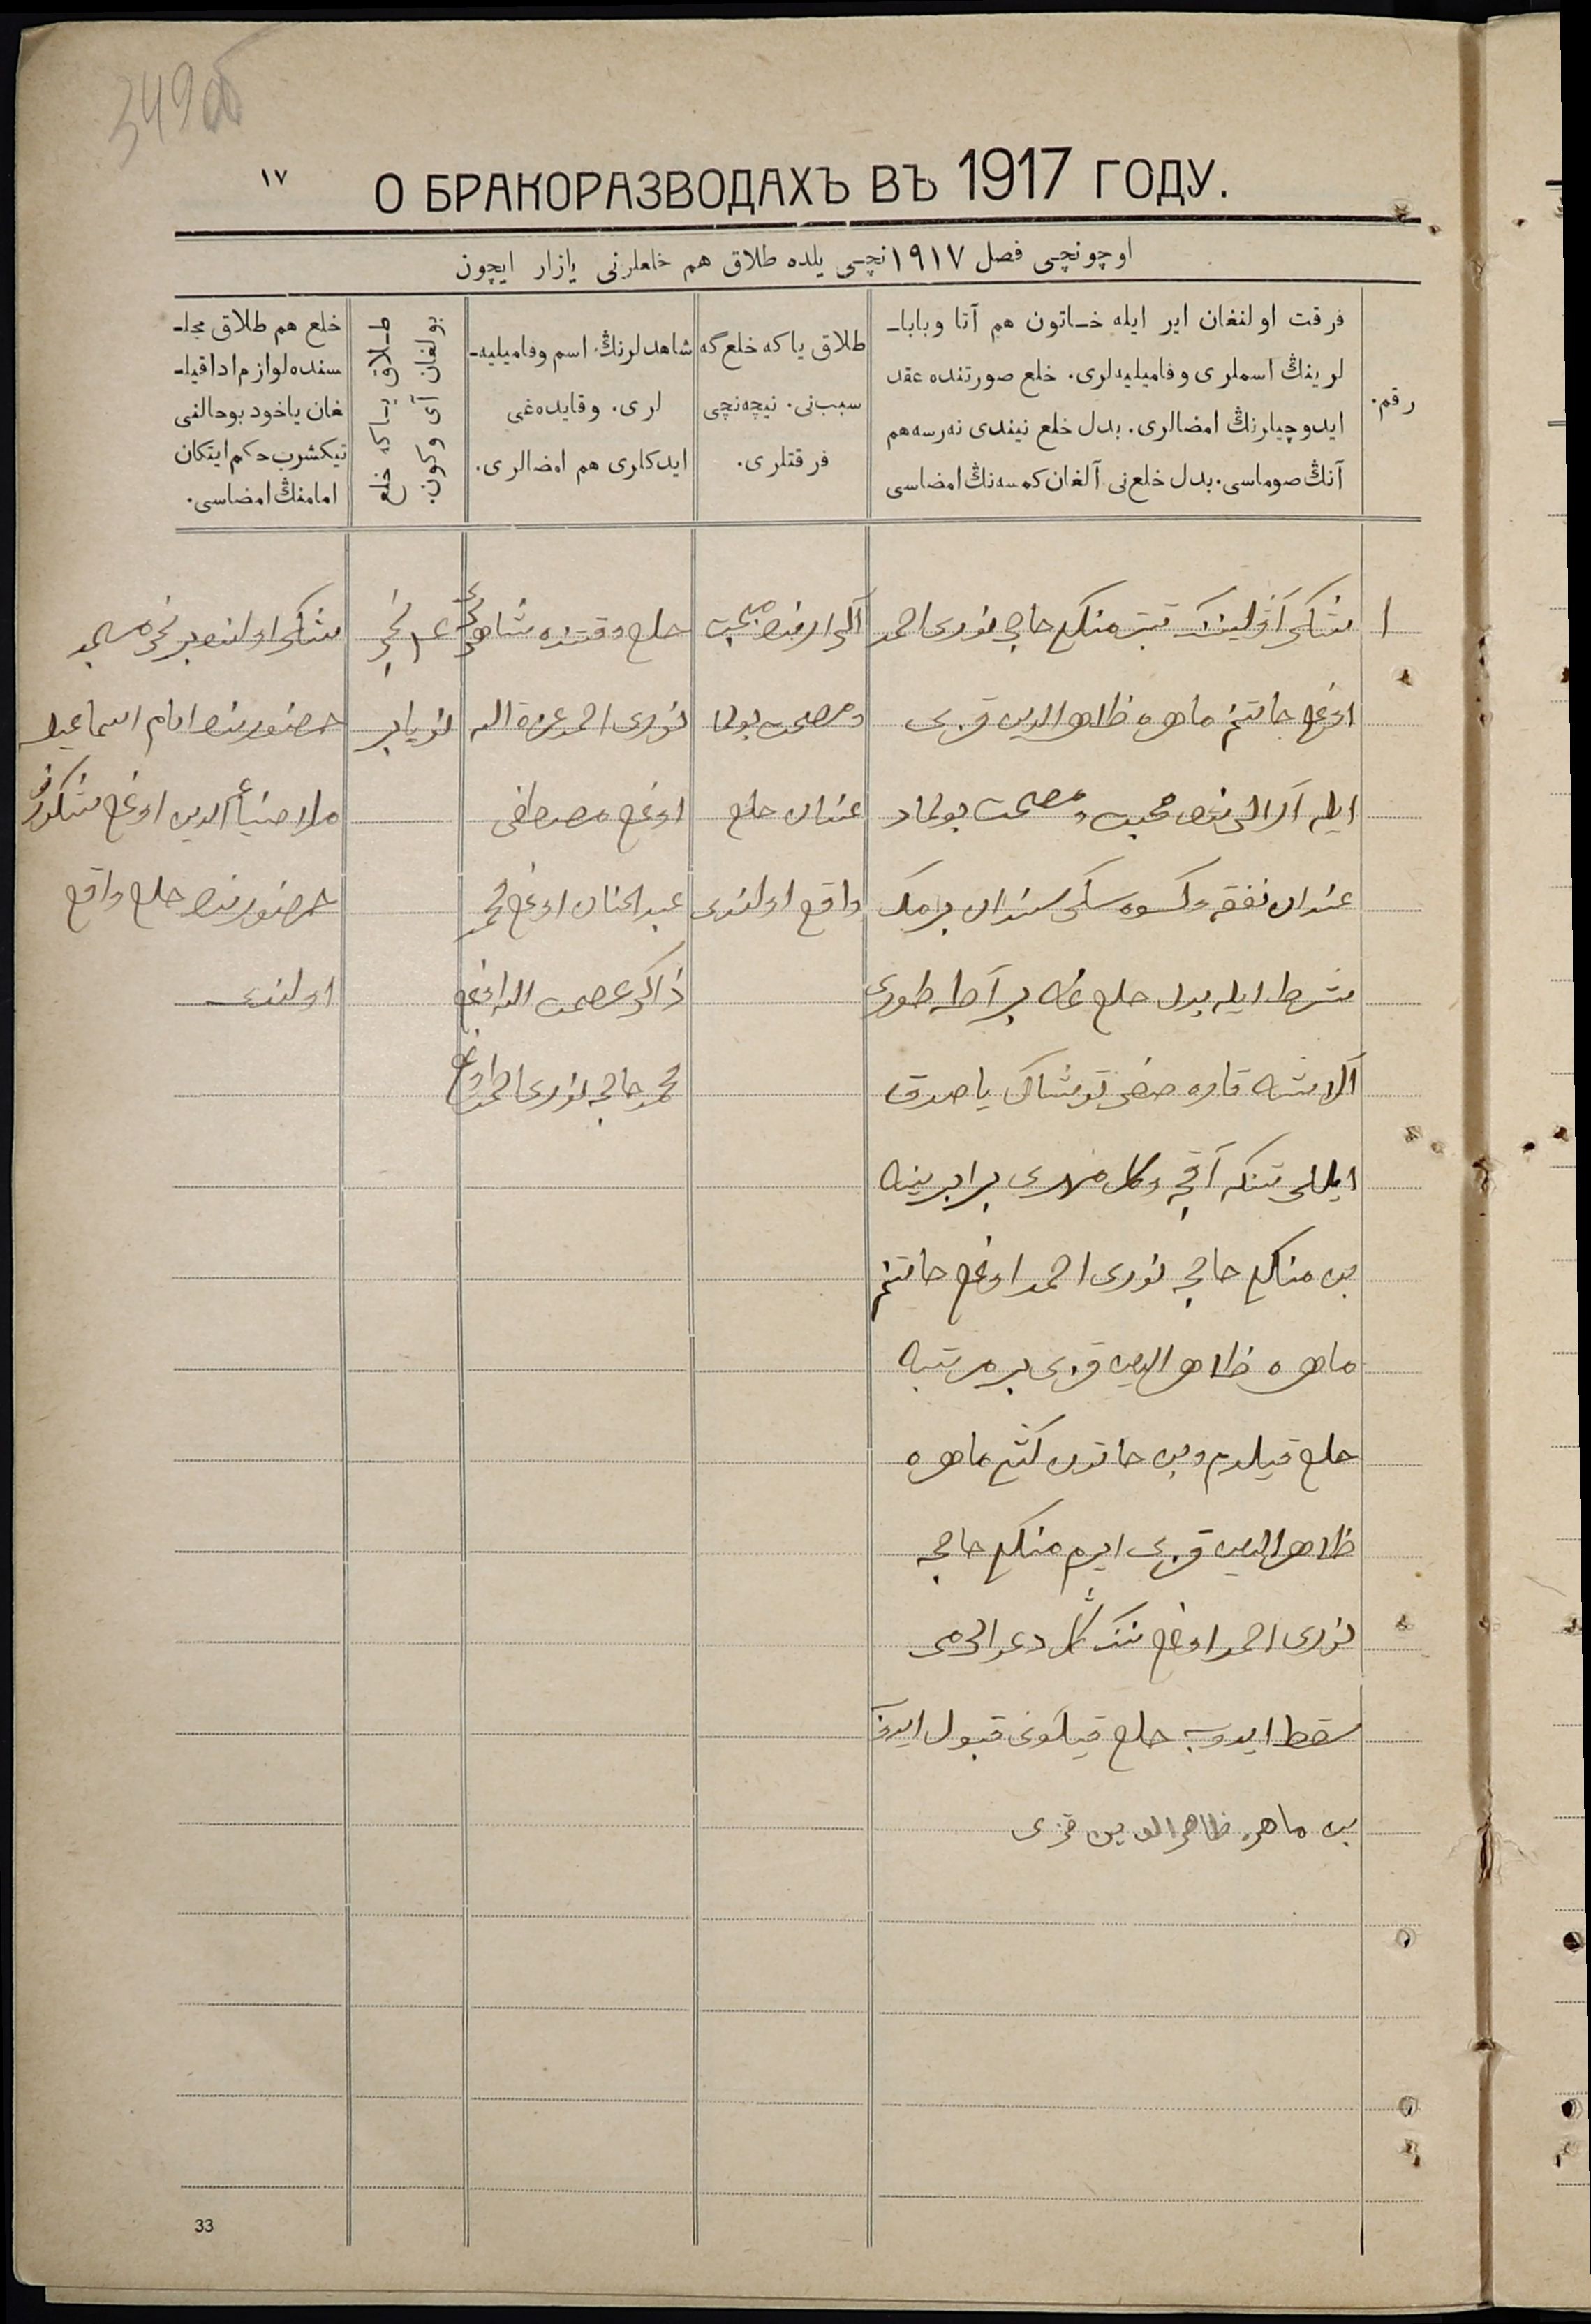 349 об
١٧
О БРАКОРАЗВОДАХЪ ВЪ 1917 ГОДУ.
اوچونچی فصل ١٩١٧ نچی يلده طلاق هم خلعلرنی يازار ايچون
رقم.
فرقت اولنغان اير ايله خاتون هم آتا وبابا-
لرينڭ اسملری وفاميليه لری. خلع صورتنده عقد
ايدوچيلرنڭ امضالری. بدل خلع نيندی نه رسه هم
آنڭ صوماسی. بدل خلع نی آلغان كمسه نڭ امضاسی
طلاق ياكه خلع گه
سبب نی. نيچه نچی
فرقتلری.
شاهدلرنڭ اسم وفاميليه-
لری. وقايده غی
ايدكلری هم امضالری.
طلاق ياكه خلع
بولغان آی وكون.
خلع هم طلاق مجلـ
سنده لوازم ادا قيلـ
غان ياخود بو حالنی
تيكشرب حكم ايتكان
امامنڭ امضاسی.
١
منكم حاجی نوری احمد
اوغلی خاتنم ماهره ظاهر الدين قزی
ايله آرالرنده محبت ومصلحت بولماد
غندان نفقه وكسوه سكنی سندان برمك
شرط ايله بدل خلع غه بر آطه طوری
آلاشه قاره توشاك ياصدق
ايللی تنكه آقچه وكل مهری برابرينه
بن منكم حاجی نوری احمد اوغلی خاتنم
ماهره ظاهر الدين قزی بر مرتبه
خلع قيلدم وبن خاتون كشی ماهره
ظاهر الدين قزی ايرم منكم حاجی
نوری احمد اوغلی ننك كل دعوالرمی
سقط ايدوب خلع قيلوی قبول ايدم
بن ماهره ظاهر الدين قزی
آلارنده محبت
ومصلحت بولما
غندان خلع
واقع اولندی
خلع وقتنده شاهد
نوری احمد عزة الله
اوغلی مصطفی
عبد الحنان اوغلی محمد
ذاكر عصمت الله اوغلی
محمد حاجی نوری احمد اوغلی
نچی
نويابر
اولنده برنچی مسجد
حضورنده امام اسماعيل
ملا ضياء الدين اوغلی
حضورنده خلع واقع
اولندی
33